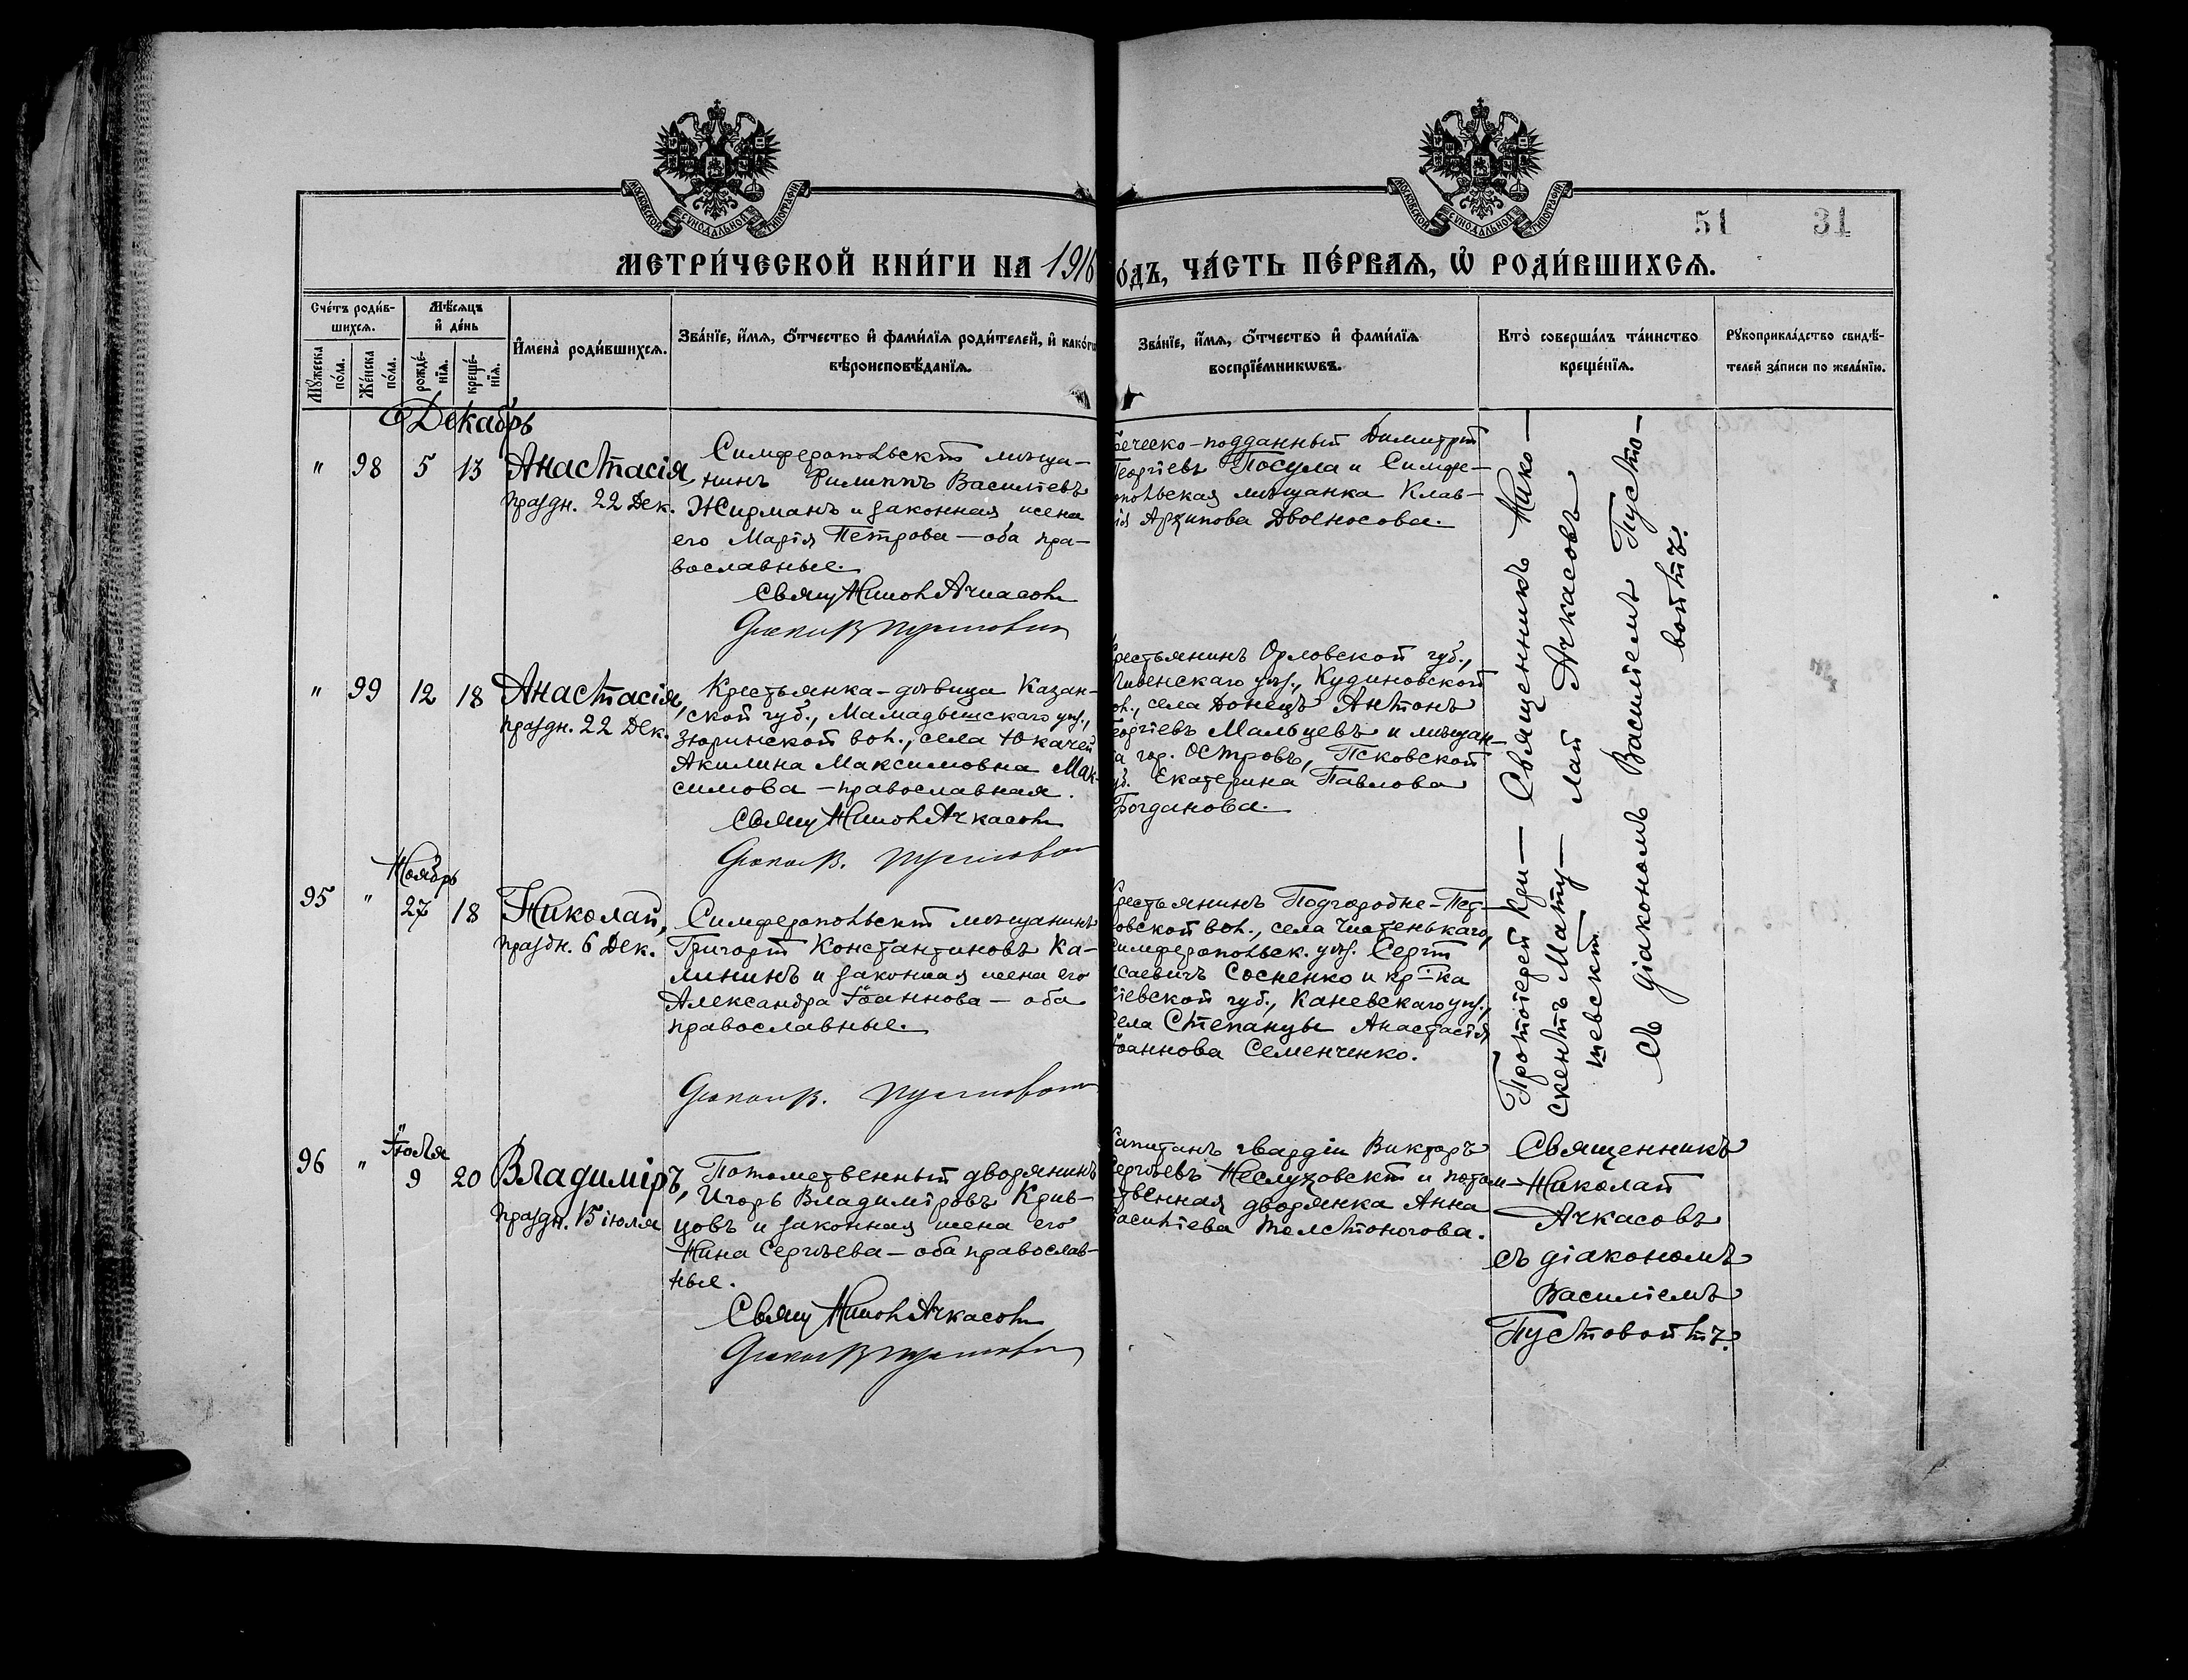 МОСКОВСКОЙ СѴНОДАЛЬНОЙ ТИПОГРАФІИ
МОСКОВСКОЙ СѴНОДАЛЬНОЙ ТИПОГРАФІИ
51 31
МЕТРИ́ЧЕСКОЙ КНИ́ГИ НА 1916
О́ДЪ, ЧА́СТЬ ПЕ́РВАЯ, Ѡ РОДИ́ВШИХСЯ.
Сче́тъ роди́в-
шихся.
Мѣ́сяцъ
и де́нь
Му́жеска
по́ла.
Же́нска
по́ла.
рожде́-
нія.
креще́-
нія.
Имена̀ роди́вшихся.
Зва́нїе, и́мя, о́тчество и фами́лїя роди́телей, и како́гѡ
вѣроисповѣ́данїя.
Зва́нїе, и́мя, о́тчество и фами́лїя
воспрїе́мникѡвъ.
Кто̀ соверша́лъ та́инство
креще́нїя.
Рукоприкла́дство свидѣ́-
телей за́писи по жела́нїю.
Декабрь
" 98 5 13 Анастасія,
праздн. 22 Дек.
Симферопольскій мѣща-
нинъ Филиппъ Васильевъ
Жирманъ и законная жена
его Марія Петрова — оба пра-
вославные.
Свящ Никол Ачкасовъ
Діакон В Пустовой
реческо-подданный Димитрій
Георгіевъ Посула и Симфе-
опольская мѣщанка Клав-
ія Архипова Двоеносова.
" 99 12 18 Анастасія,
праздн. 22 Дек.
Крестьянка-дѣвица Казан-
ской губ., Мамадышскаго уѣз.,
Зюринской вол., села Юкачей
Акилина Максимовна Мак-
симова — православная.
Свящ Никол Ачкасовъ
Діакон В. Пустовой
рестьянинъ Орловской губ.,
Ливенскаго уѣз., Кудиновской
ол., села Донецъ Антонъ
Георгіевъ Мальцевъ и мѣщан-
а гор. Островъ, Псковской
уб. Екатерина Павлова
Богданова.
Ноябрь
95 " 27 18 Николай,
праздн. 6 Дек.
Симферопольскій мѣщанинъ
Григорій Константиновъ Ка-
лининъ и законная жена его
Александра Іоаннова — оба
православные.
Діакон В. Пустовой
рестьянинъ Подгородне-Пет-
овской вол., села Чистенькаго,
Симферопольск. уѣз. Сергій
Исаевичъ Сосненко и кр-ка
іевской губ., Каневскаго уѣз.,
села Степанцы Анастасія
Іоаннова Семенченко.
Протоіерей Кри— Священникъ Нико—
скентъ Мату— лай Ачкасовъ
шевскій
съ діакономъ Василіемъ Пусто-
войтъ.
Іюля
96 " 9 20 Владиміръ,
праздн. 15 іюля
Потомственный дворянинъ
Игорь Владиміровъ Крив-
цовъ и законная жена его
Нина Сергѣева — оба православ-
ные.
Свящ Никол Ачкасовъ
Діакон В Пустовой
Капитанъ гвардіи Викторъ
Сергѣевъ Неслуховскій и потом-
ственная дворянка Анна
Васильева Толстоногова.
Священникъ
Николай
Ачкасовъ
съ діакономъ
Василіемъ
Пустовойтъ.